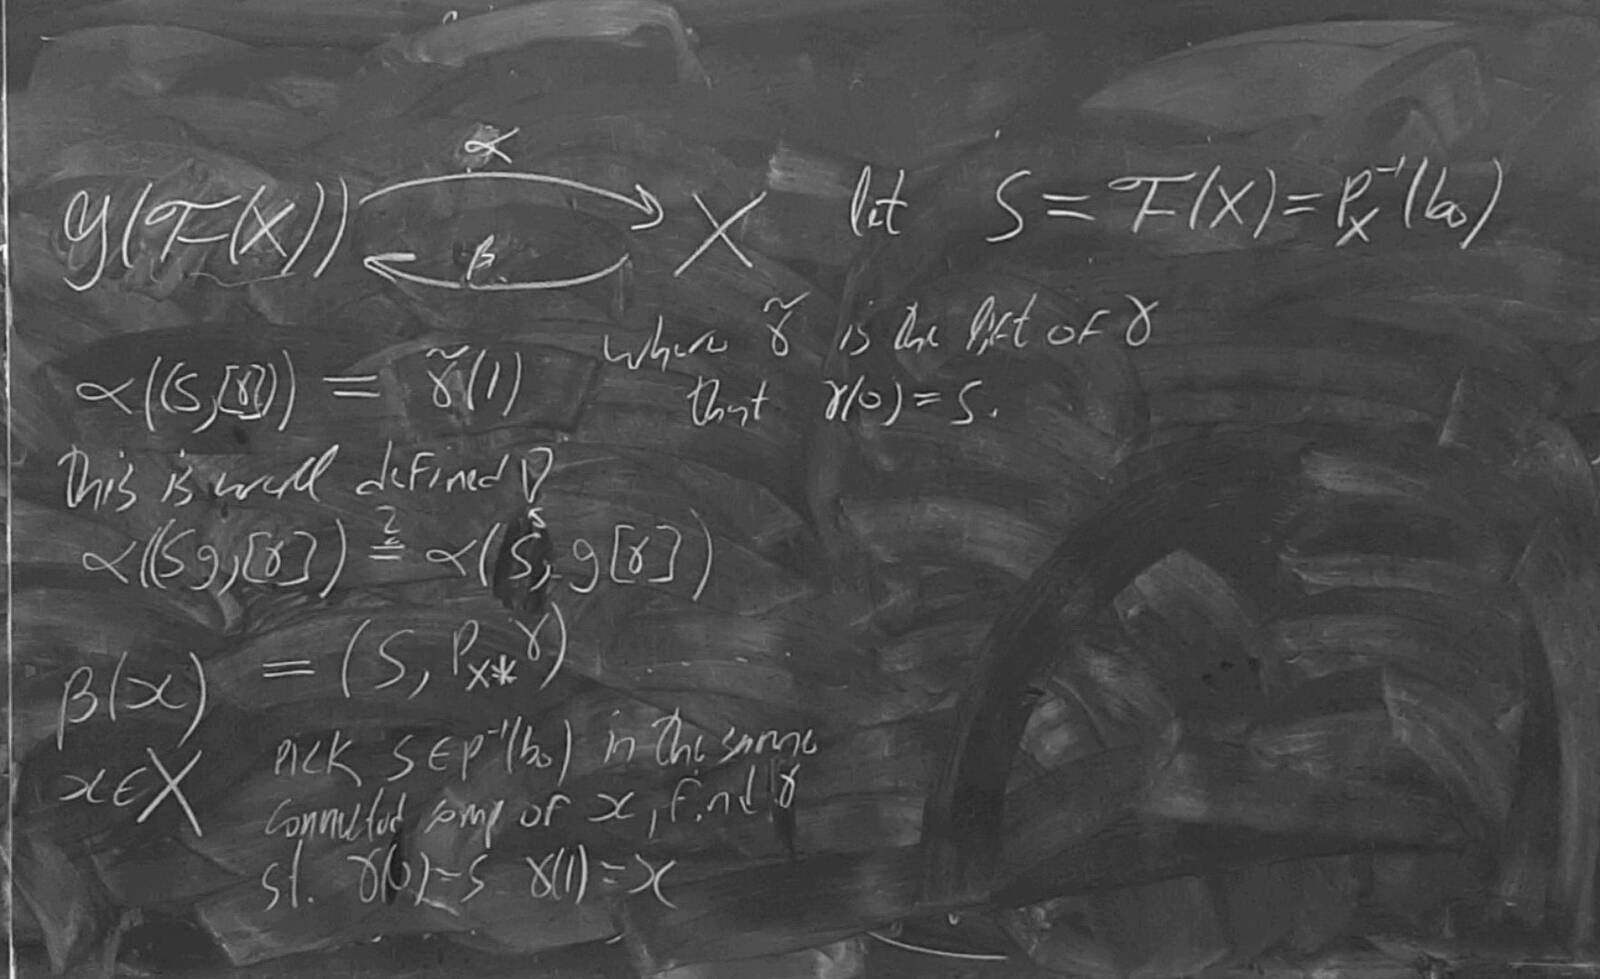 𝒢(ℱ(X)) α β X let S = ℱ(X) = P_X^{-1}(b₀)
α((s,[γ])) = γ̃(1) where γ̃ is the lift of γ
that γ(0) = s.
this is well defined
α((sg,[γ]) ≟ α(s, g[γ])
β(x) = (s, P_{X*}γ)
x∈X pick s∈p^{-1}(b₀) in the same
connected comp of x, find γ
st. γ(0)=s γ(1)=x